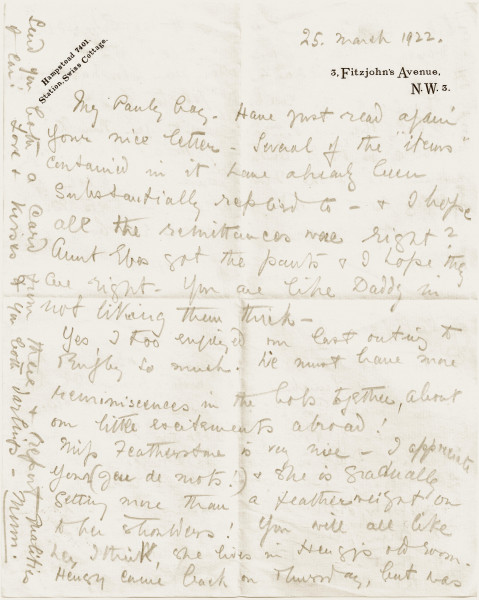 25. March 1922.
Hampstead 7401.
Station, Swiss Cottage.
3, Fitzjohn's Avenue,
N.W. 3.
My Pauly boy - Have just read again
your nice letter - Several of the "items"
contained in it have already been
substantially replied to - & I hope
all the remittances were right?
Aunt got the pants & I hope they
are right - You are like Daddy in
not liking them thick -
Yes I too enjoyed our last outing to
so much. We must have more
reminiscences in the hols together, about
our little excitements abroad!
Miss Featherstone is very nice - I appreciate
your (jeu de mots!) & she is gradually
getting more than a featherweight on
to her shoulders! You will all like
her, I think, she lives in Henry's old room.
Henry came back on Thursday, but was
Send you both a card from there & report
Love & kisses to you both darlings -
Mum.